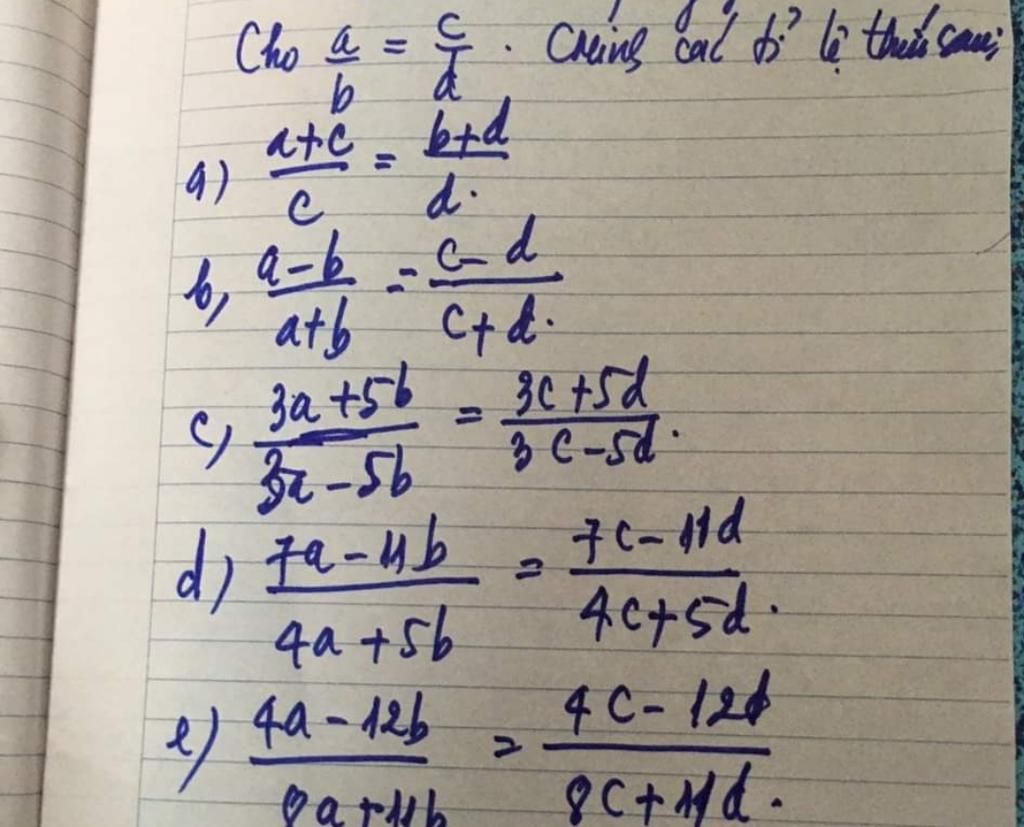 Cho a/b = c/d . Chứng các tỉ lệ thức sau:
a) (a+c)/c = (b+d)/d.
b, (a-b)/(a+b) = (c-d)/(c+d).
c, (3a+5b)/(3a-5b) = (3c+5d)/(3c-5d).
d) (7a-11b)/(4a+5b) = (7c-11d)/(4c+5d).
e) (4a-12b)/(8a+11b) = (4c-12d)/(8c+11d).